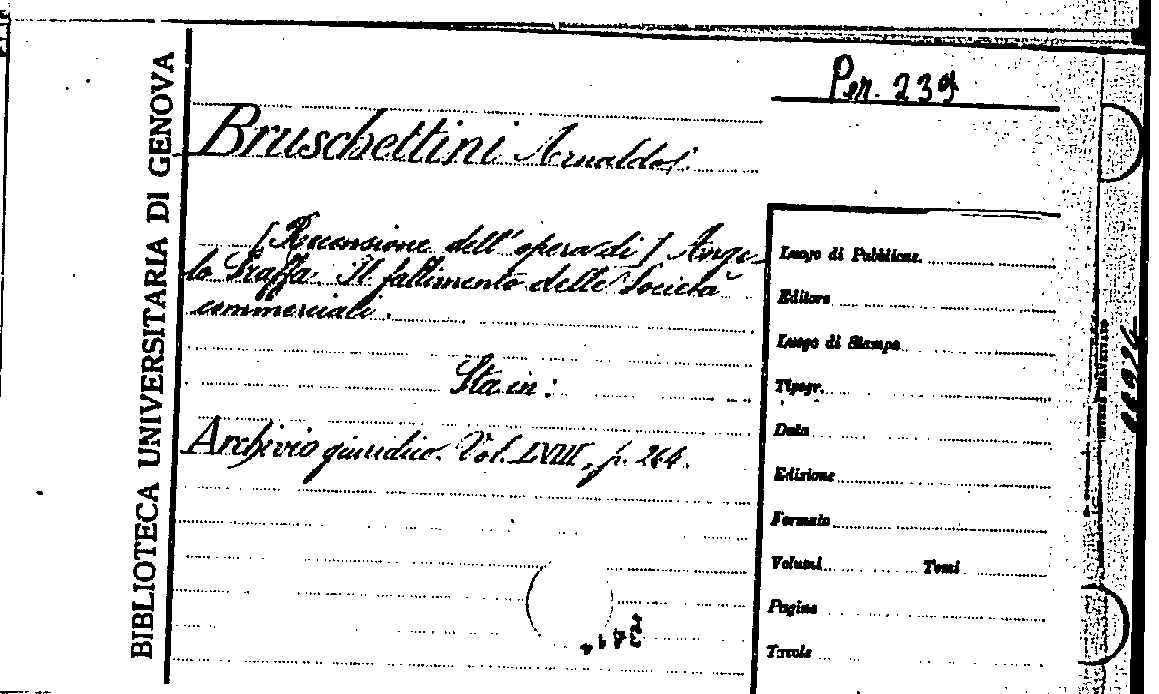 BIBLIOTECA UNIVERSITARIA DI GENOVA
Per. 239
Bruschettini Arnaldo.
[Recensione dell'opera di] Ange-
lo Sraffa. Il fallimento delle Società
commerciali.
Sta in:
Archivio giuridico. Vol. LXIII, p. 264.
Luogo di Pubblicaz.
Editore
Luogo di Stampa
Tipogr.
Data
Edizione
Formato
Volumi Tomi
Pagine
Tavole